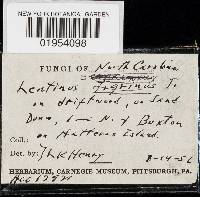 NEW YORK BOTANICAL GARDEN
01954098
FUNGI OF North Carolina
Lentinus tigrinus
on driftwood, on Sand
Dune, 1 N. of Buxton
on Hatteras Island.
Coll.
Det. by: LK Henry 8-14-56
HERBARIUM, CARNEGIE MUSEUM, PITTSBURGH, PA.